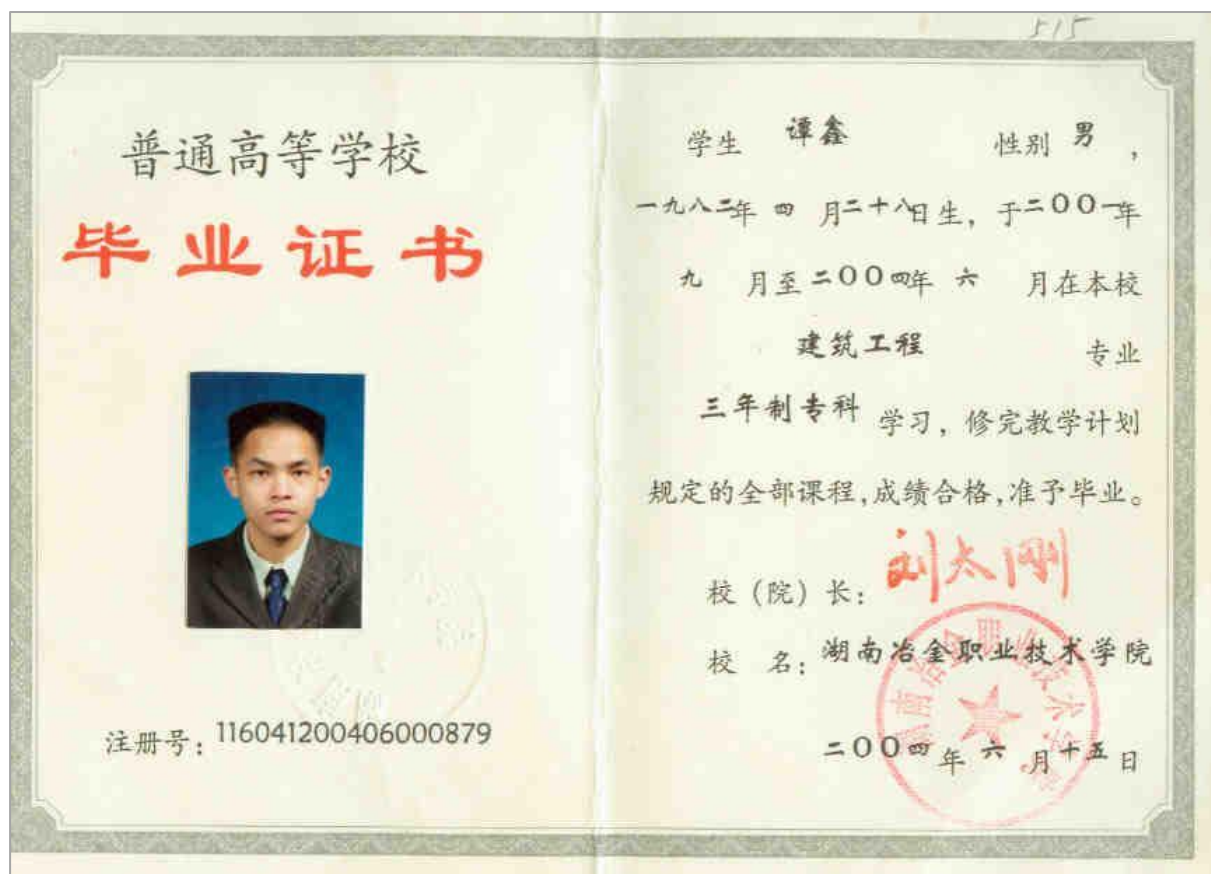 515
普通高等学校
毕业证书
注册号：116041200406000879
学生 谭鑫 性别 男，
一九八二年 四 月二十八日生，于二００一年
九 月至二００四年 六 月在本校
建筑工程 专业
三年制专科 学习，修完教学计划
规定的全部课程，成绩合格，准予毕业。
校（院）长：刘太刚
校 名：湖南冶金职业技术学院
湖南冶金职业技术学院
二００四年 六 月十五日